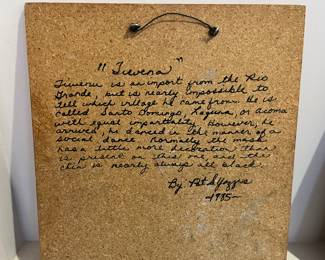 "Tuvena"
Tuvenu is an import from the Rio
Grande, but is nearly impossible to
tell which village he came from. He is
called Santo Domingo, Laguna, or Acoma
with equal impartiality. However, he
arrived, he danced in the manner of a
social dance. Normally the mask
has a little more decoration than
is present on this one, and the
chin is nearly always all black.
By: Pat
-1985-